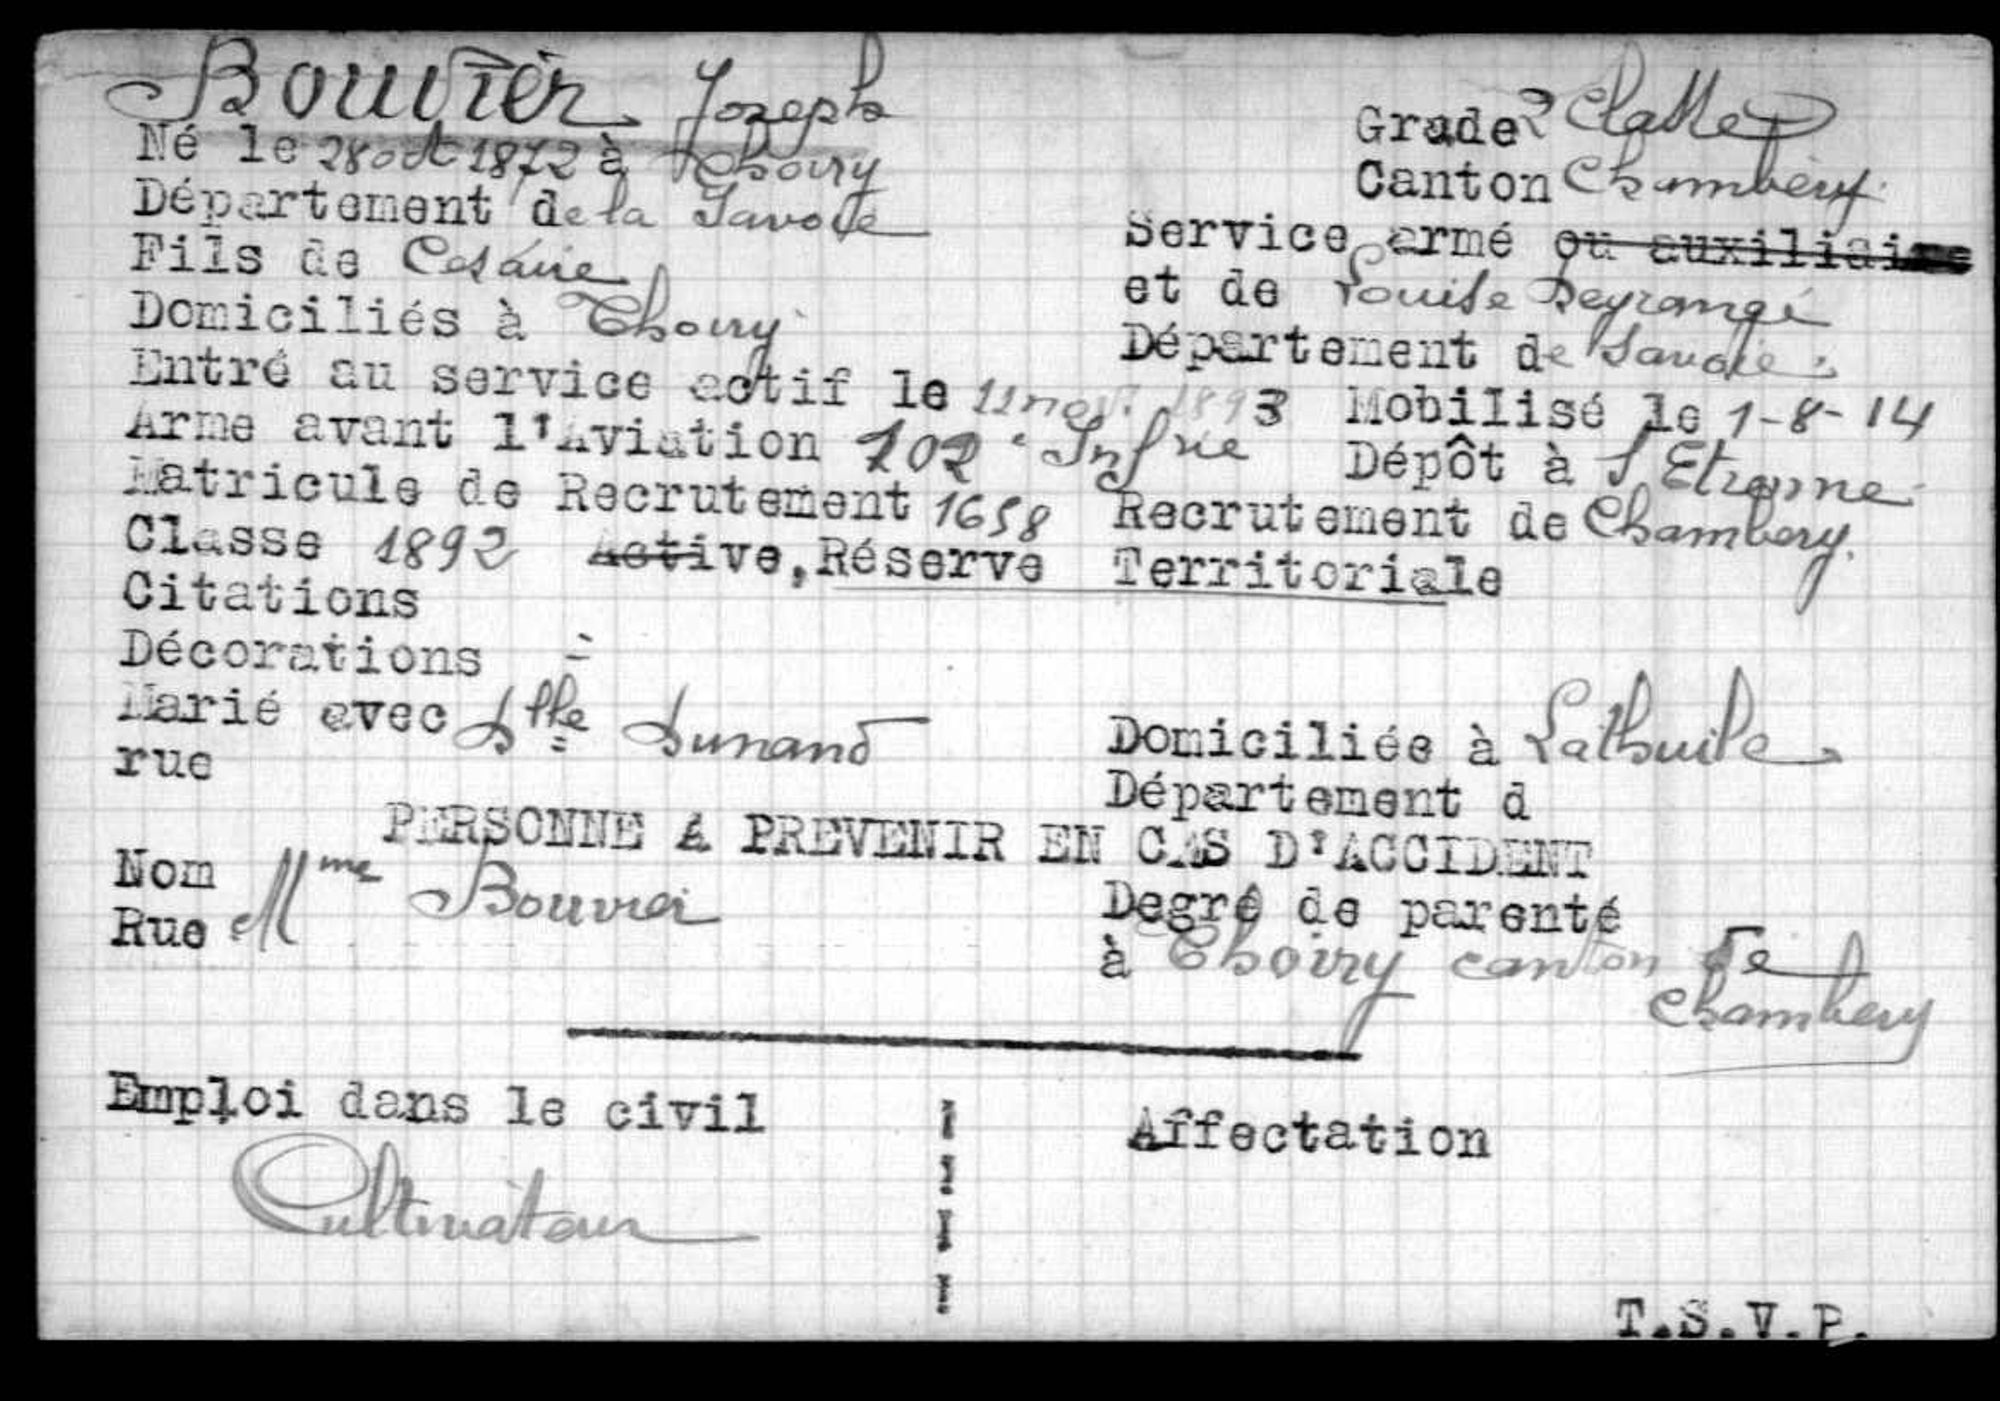 Bouvier Joseph
Grade 2e Classe
Né le 28 oct 1872 à Thoiry
Canton Chambéry
Département de la Savoie
Service armé ou auxiliaire
Fils de Césaire
et de Louise
Domiciliés à Thoiry
Département de Savoie
Entré au service actif le 11 nov. 1893 Mobilisé le 1-8-14
Arme avant l'Aviation 102e Infrie Dépôt à St Etienne
Matricule de Recrutement 1658 Recrutement de Chambery.
Classe 1892 Active, Réserve Territoriale
Citations
Décorations =
Marié avec Dlle Dunand
Domiciliée à Lathuile
rue
Département d
PERSONNE A PREVENIR EN CAS D'ACCIDENT
Nom Mme Bouvier
Degré de parenté
Rue
à Thoiry canton de Chambery
Emploi dans le civil
Affectation
Cultivateur
T.S.V.P.